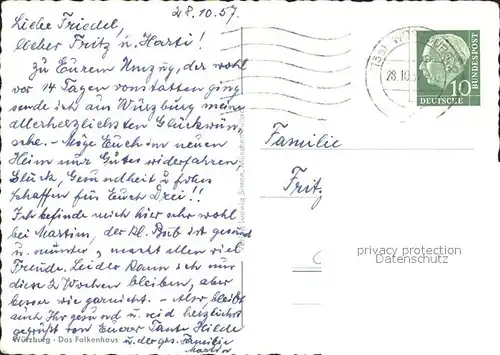 28.10.57.
Liebe Friedel,
lieber Fritz u. Harti!
Zu Eurem Umzug, der wohl
vor 14 Tagen vonstatten ging
sende ich aus Würzburg meine
allerherzlichsten Glückwün-
sche. - Möge Euch im neuen
Heim nur Gutes widerfahren,
Glück, Gesundheit u. frohes
Schaffen für Euch Drei!!
Ich befinde mich hier sehr wohl
bei Martin, der kl. Bub ist gesund
u. munter, macht allen viel
Freude. Leider kann ich nur
diese 2 Wochen bleiben, aber
besser wie garnicht. - Also, bleibt
auch Ihr gesund u. seid herzlichst
gegrüßt von Eurer Tante Hilde
u. der ges. Familie
Martin
Würzburg - Das Falkenhaus
Ludwig Simon, München
28.10.5
10
DEUTSCHE
BUNDESPOST
Familie
Fritz
privacy protection
Datenschutz